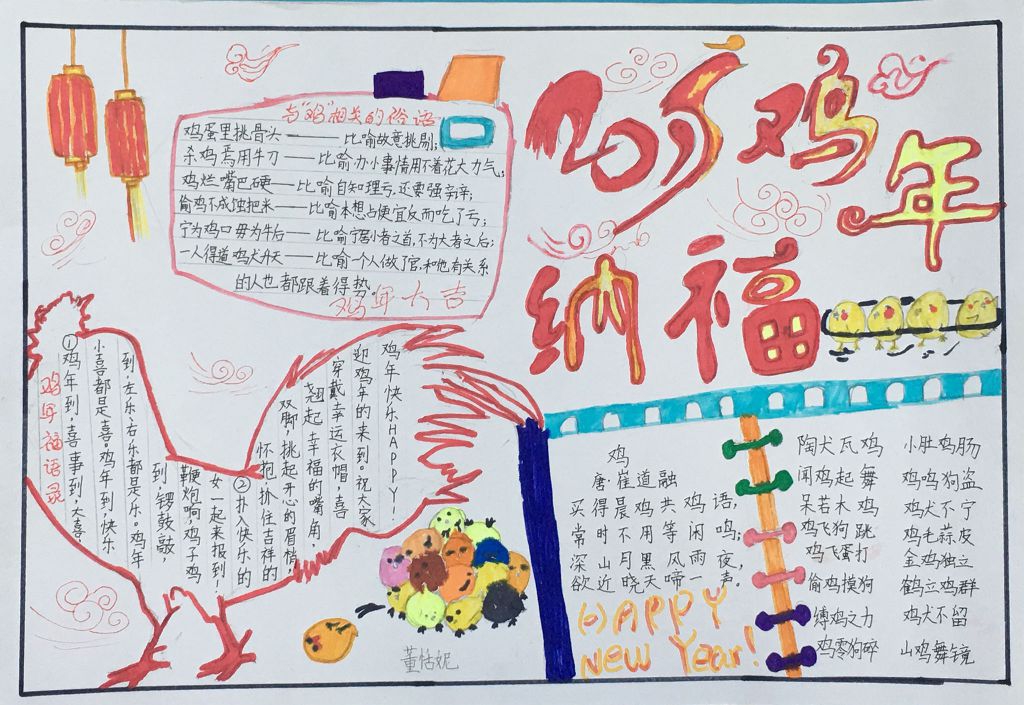 2017鸡年
纳福
与“鸡”相关的俗语
鸡蛋里挑骨头——比喻故意挑剔;
杀鸡焉用牛刀——比喻办小事情用不着花大力气;
鸡烂嘴巴硬——比喻自知理亏,还要强辛辛;
偷鸡不成蚀把米——比喻本想占便宜反而吃了亏;
宁为鸡口毋为牛后——比喻宁居小者之首,不为大者之后;
一人得道鸡犬升天——比喻一个人做了官,和他有关系
的人也都跟着得势。
鸡年大吉
鸡年福语录
①鸡年到,喜事到,大喜
小喜都是喜。鸡年到,快乐
到,左乐右乐都是乐。鸡年
到,锣鼓敲,
鞭炮响,鸡子鸡
女一起来报到!
②扑入快乐的
怀抱,抓住吉祥的
双脚,挑起开心的眉梢,
翘起幸福的嘴角,
穿戴幸运衣帽,喜
迎鸡年的来到。祝大家
鸡年快乐HAPPY!
鸡
唐·崔道融
买得晨鸡共鸡语,
常时不用等闲鸣;
深山月黑风雨夜,
欲近晓天啼一声。
HAPPY
New Year!
陶犬瓦鸡 小肚鸡肠
闻鸡起舞 鸡鸣狗盗
呆若木鸡 鸡犬不宁
鸡飞狗跳 鸡毛蒜皮
鸡飞蛋打 金鸡独立
偷鸡摸狗 鹤立鸡群
缚鸡之力 鸡犬不留
鸡零狗碎 山鸡舞镜